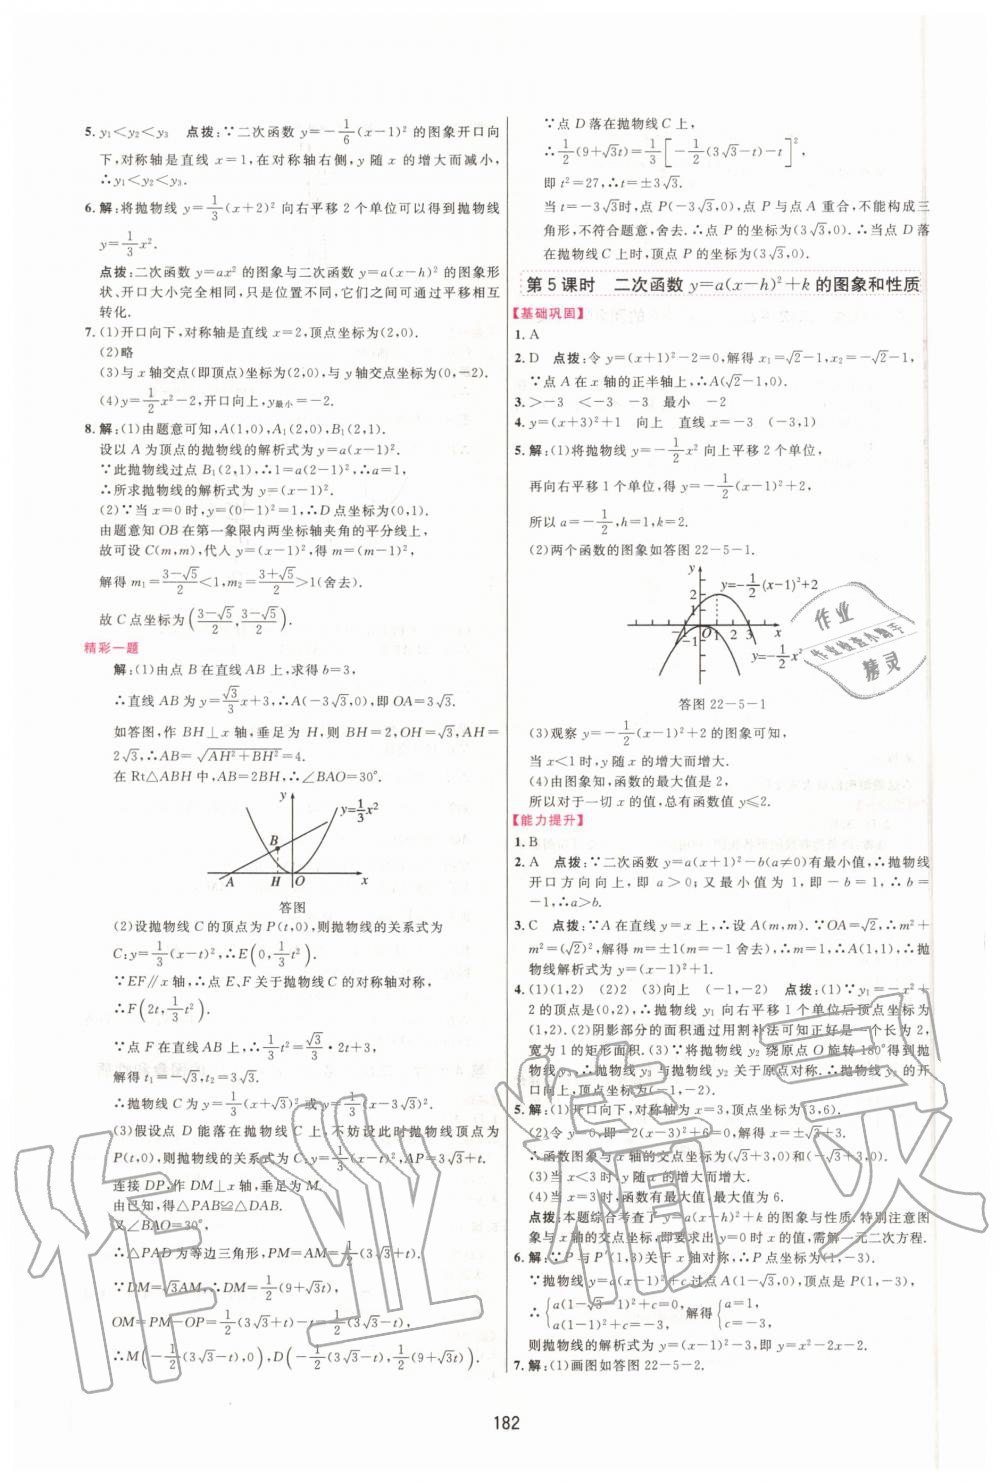 5. y₁＜y₂＜y₃　点拨：∵二次函数 y=-1/6(x-1)² 的图象开口向
下，对称轴是直线 x=1，在对称轴右侧，y 随 x 的增大而减小，
∴y₁＜y₂＜y₃.
6. 解：将抛物线 y=1/3(x+2)² 向右平移 2 个单位可以得到抛物线
y=1/3x².
点拨：二次函数 y=ax² 的图象与二次函数 y=a(x-h)² 的图象形
状、开口大小相同，只是位置不同，它们之间可通过平移相互
转化.
7. (1)开口向下，对称轴是直线 x=2，顶点坐标为(2,0).
(2)略
(3)与 x 轴交点(即顶点)坐标为(2,0)，与 y 轴交点坐标为(0,-2).
(4)y=1/2x²-2，开口向上，y最小=-2.
8. 解：(1)由题意可知，A(1,0)，A₁(2,0)，B₁(2,1).
设以 A 为顶点的抛物线的解析式为 y=a(x-1)².
∵此抛物线过点 B₁(2,1)，∴1=a(2-1)²，∴a=1，
∴所求抛物线的解析式为 y=(x-1)².
(2)∵当 x=0时，y=(0-1)²=1，∴D 点坐标为(0,1).
由题意知 OB 在第一象限内两坐标轴夹角的平分线上，
故可设 C(m,m)，代入 y=(x-1)²，得 m=(m-1)²，
解得 m₁=(3-√5)/2＜1，m₂=(3+√5)/2＞1(舍去).
故 C 点坐标为((3-√5)/2,(3-√5)/2).
精彩一题
解：(1)由点 B 在直线 AB 上，求得 b=3，
∴直线 AB 为 y=√3/3x+3，∴A(-3√3,0)，即 OA=3√3.
如答图，作 BH⊥x 轴，垂足为 H，则 BH=2，OH=√3，AH=
2√3，∴AB=√(AH²+BH²)=4.
在 Rt△ABH 中，AB=2BH，∴∠BAO=30°.
y
y=1/3x²
B
A H O x
答图
(2)设抛物线 C 的顶点为 P(t,0)，则抛物线的关系式为
C：y=1/3(x-t)²，∴E(0,1/3t²).
∵EF∥x 轴，∴点 E、F 关于抛物线 C 的对称轴对称，
∴F(2t,1/3t²).
∵点 F 在直线 AB 上，∴1/3t²=√3/3·2t+3，
解得 t₁=-√3，t₂=3√3.
∴抛物线 C 为 y=1/3(x+√3)² 或 y=1/3(x-3√3)².
(3)假设点 D 能落在抛物线 C 上，不妨设此时抛物线顶点为
P(t,0)，则抛物线的关系式为 C：y=1/3(x-t)²，AP=3√3+t，
连接 DP，作 DM⊥x 轴，垂足为 M.
由已知，得△PAB≌△DAB.
又∠BAO=30°，
∴△PAD 为等边三角形，PM=AM=1/2(3√3+t)，
∵DM=√3AM，∴DM=1/2(9+√3t)，
OM=PM-OP=1/2(3√3+t)-t=1/2(3√3-t)，
∴M(-1/2(3√3-t),0)，D(-1/2(3√3-t),1/2(9+√3t)).
∵点 D 落在抛物线 C 上，
∴1/2(9+√3t)=1/3[-1/2(3√3-t)-t]²，
即 t²=27，∴t=±3√3.
当 t=-3√3时，点 P(-3√3,0)，点 P 与点 A 重合，不能构成三
角形，不符合题意，舍去. ∴点 P 的坐标为(3√3,0). ∴当点 D 落
在抛物线 C 上时，顶点 P 的坐标为(3√3,0).
第 5 课时　二次函数 y=a(x-h)²+k 的图象和性质
【基础巩固】
1. A
2. D　点拨：令 y=(x+1)²-2=0，解得 x₁=√2-1，x₂=-√2-1，
∵点 A 在 x 轴的正半轴上，∴A(√2-1,0).
3. ＞-3　＜-3　-3　最小　-2
4. y=(x+3)²+1　向上　直线 x=-3　(-3,1)
5. 解：(1)将抛物线 y=-1/2x² 向上平移 2 个单位，
再向右平移 1 个单位，得 y=-1/2(x-1)²+2，
所以 a=-1/2，h=1，k=2.
(2)两个函数的图象如答图 22-5-1.
y
y=-1/2(x-1)²+2
2
1
-1 O 1 2 3 x
-1
y=-1/2x²
答图 22-5-1
(3)观察 y=-1/2(x-1)²+2 的图象可知，
当 x＜1 时，y 随 x 的增大而增大.
(4)由图象知，函数的最大值是 2，
所以对于一切 x 的值，总有函数值 y≤2.
【能力提升】
1. B
2. A　点拨：∵二次函数 y=a(x+1)²-b(a≠0)有最小值，∴抛物线
开口方向向上，即 a＞0；又最小值为 1，即-b=1，∴b=
-1，∴a＞b.
3. C　点拨：∵A 在直线 y=x 上，∴设 A(m,m). ∵OA=√2，∴m²+
m²=(√2)²，解得 m=±1(m=-1 舍去)，∴m=1，∴A(1,1)，∴抛
物线解析式为 y=(x-1)²+1.
4. (1)(1,2)　(2)2　(3)向上　(-1,-2)　点拨：(1)∵y=-x²+
2的顶点是(0,2)，∴抛物线 y₁ 向右平移 1 个单位后顶点坐标为
(1,2). (2)阴影部分的面积通过用割补法可知正好是一个长为 2，
宽为 1 的矩形面积. (3)∵将抛物线 y₂ 绕原点 O 旋转 180°得到抛
物线 y₃，∴抛物线 y₃ 与抛物线 y₂ 关于原点对称. ∴抛物线 y₃ 的开
口向上，顶点坐标为(-1,-2).
5. 解：(1)开口向下，对称轴为 x=3，顶点坐标为(3,6).
(2)令 y=0，即-2(x-3)²+6=0，解得 x=±√3+3.
∴函数图象与 x 轴的交点坐标为(√3+3,0)和(-√3+3,0).
(3)当 x＜3 时，y 随 x 的增大而增大.
(4)当 x=3 时，函数有最大值，最大值为 6.
点拨：本题综合考查了 y=a(x-h)²+k 的图象与性质，特别注意图
象与 x 轴的交点坐标，即要求出 y=0时 x 的值，需解一元二次方程.
6. 解：∵P 与 P′(1,3)关于 x 轴对称，∴P 点坐标为(1,-3).
∵抛物线 y=a(x-1)²+c 过点 A(1-√3,0)，顶点是 P(1,-3)，
∴{a(1-√3-1)²+c=0, a(1-1)²+c=-3, 解得{a=1, c=-3.
则抛物线的解析式为 y=(x-1)²-3，即 y=x²-2x-2.
7. 解：(1)画图如答图 22-5-2.
作业
作业检查小助手
精灵
作业精灵
182